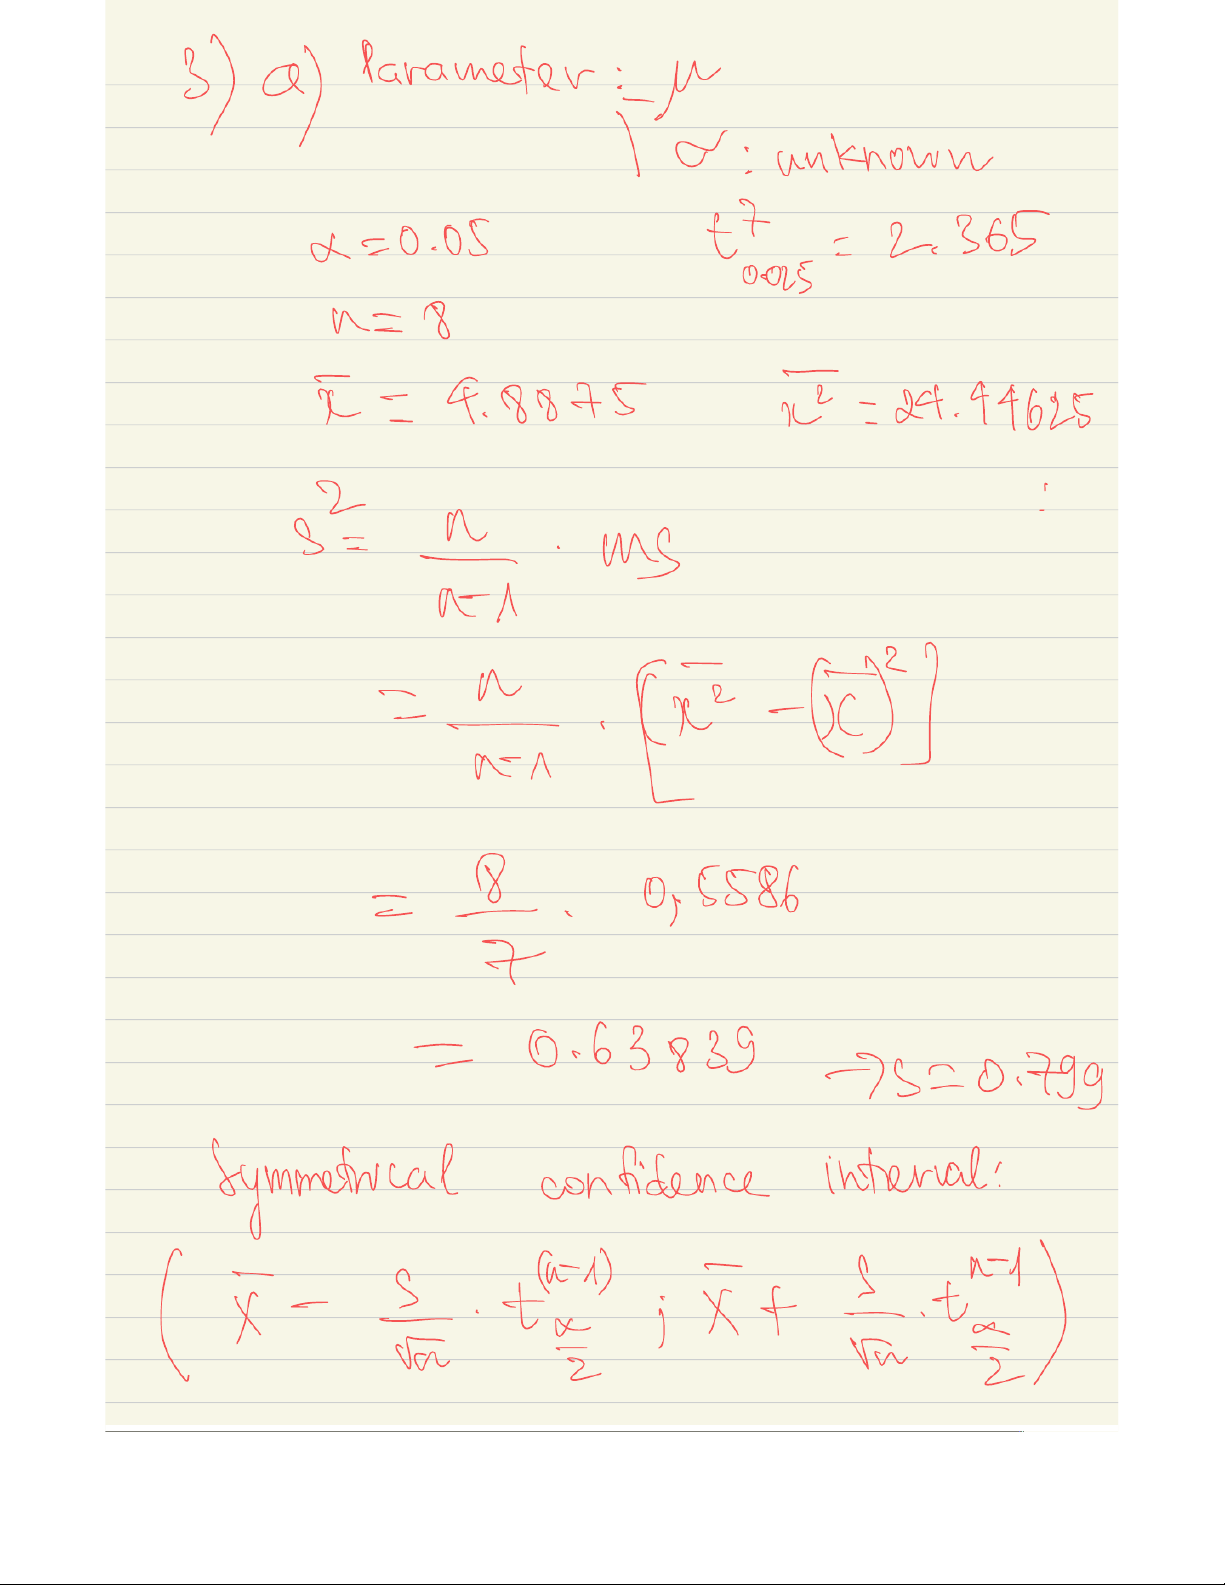 3) a) Parameter: μ
σ: unknown
α = 0.05 t^7_0.025 = 2.365
n = 8
x̄ = 4.8875 \overline{x^2} = 24.44625
s^2 = n/(n-1) · ms
= n/(n-1) · [\overline{x^2} - (x̄)^2]
= 8/7 · 0,5586
= 0.63839 → s = 0.799
Symmetrical confidence interval:
(X̄ - s/√n · t_{α/2}^{(n-1)} ; X̄ + s/√n · t_{α/2}^{n-1})